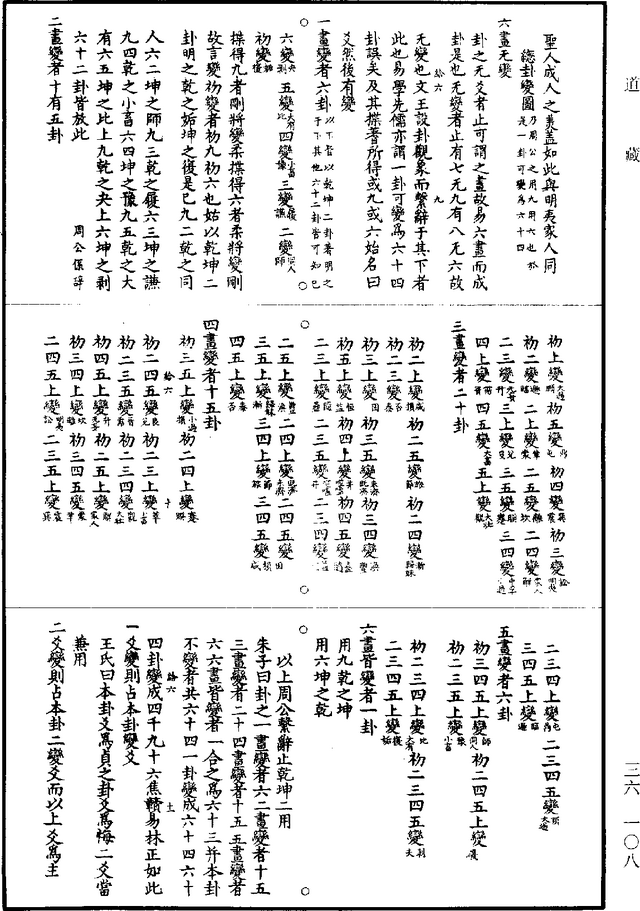 道藏
三六 一〇八
聖人成人之美蓋如此與明夷家人同
總卦變圖 乃周公之用九用六也亦是一卦可變為六十四
六畫无變
卦之无爻者止可謂之畫故易六畫而成
卦是也无變者止有七无九有八无六故
无變也文王設卦觀象而繫辭于其下者
此也易學先儒亦謂一卦可變爲六十四
卦誤矣及其揲蓍所得或九或六始名曰
爻然後有變
一畫變者六卦 以下皆以乾坤二卦著明之于下其他六十二卦皆可知已
六變夬剥 五變大有比 四變小畜豫 三變履謙 二變同人師
初變姤復
揲得九者剛將變柔揲得六者柔將變剛
故言變初變者初九初六也姑以乾坤二
卦明之乾之姤坤之復是已九二乾之同
人六二坤之師九三乾之履六三坤之謙
九四乾之小畜六四坤之豫九五乾之大
有六五坤之比上九乾之夬上六坤之剥
六十二卦皆放此 周公係辭
二畫變者十有五卦
初上變大過頤 初五變鼎屯 初四變巽震 初三變訟明夷
初二變遯臨 二上變革蒙 二五變離坎 二四變家人解
二三變无妄升 三上變兌艮 三五變睽蹇 三四變中孚小過
四上變需晉 四五變大畜萃 五上變大壯觀
三畫變者二十卦
初二上變咸損 初二五變旅節 初二四變漸歸妹
初二三變否泰
初三上變困賁 初三五變未濟既濟 初三四變渙豐
初五上變恒益 初四上變井噬嗑 初四五變蠱隨
二三上變隨蠱 二三五變噬嗑井 二三四變益恒
二五上變豐渙 二四上變既濟未濟 二四五變賁困
三五上變歸妹漸 三四上變節旅 三四五變損咸
四五上變泰否
四畫變者十五卦
初三五上變解家人 初二四上變蹇睽
初二四五變艮兌 初二三上變萃大畜
初二三五變晉需 初二三四變觀大壯
初四五上變升无妄 初二五上變小過中孚
初三四上變坎離 初三四五變蒙革
二四五上變明夷訟 二三五上變震巽
二三四上變屯鼎 二三四五變頤大過
三四五上變臨遯
五畫變者六卦
初三四五上變師同人 初二四五上變謙履
初二三五上變豫小畜
初二三四上變比大有 初二三四五變剥夬
二三四五上變復姤
六畫皆變者一卦
用九乾之坤
用六坤之乾
以上周公繫辭止乾坤二用
朱子曰卦之一畫變者六二畫變者十五
三畫變者二十四畫變者十五五畫變者
六六畫皆變者一合之爲六十三并本卦
不變者共六十四一卦變成六十四六十
四卦變成四千九十六焦贛易林正如此
一爻變則占本卦變爻
王氏曰本卦爻爲貞之卦爻爲悔二爻當
兼用
二爻變則占本卦二變爻而以上爻爲主